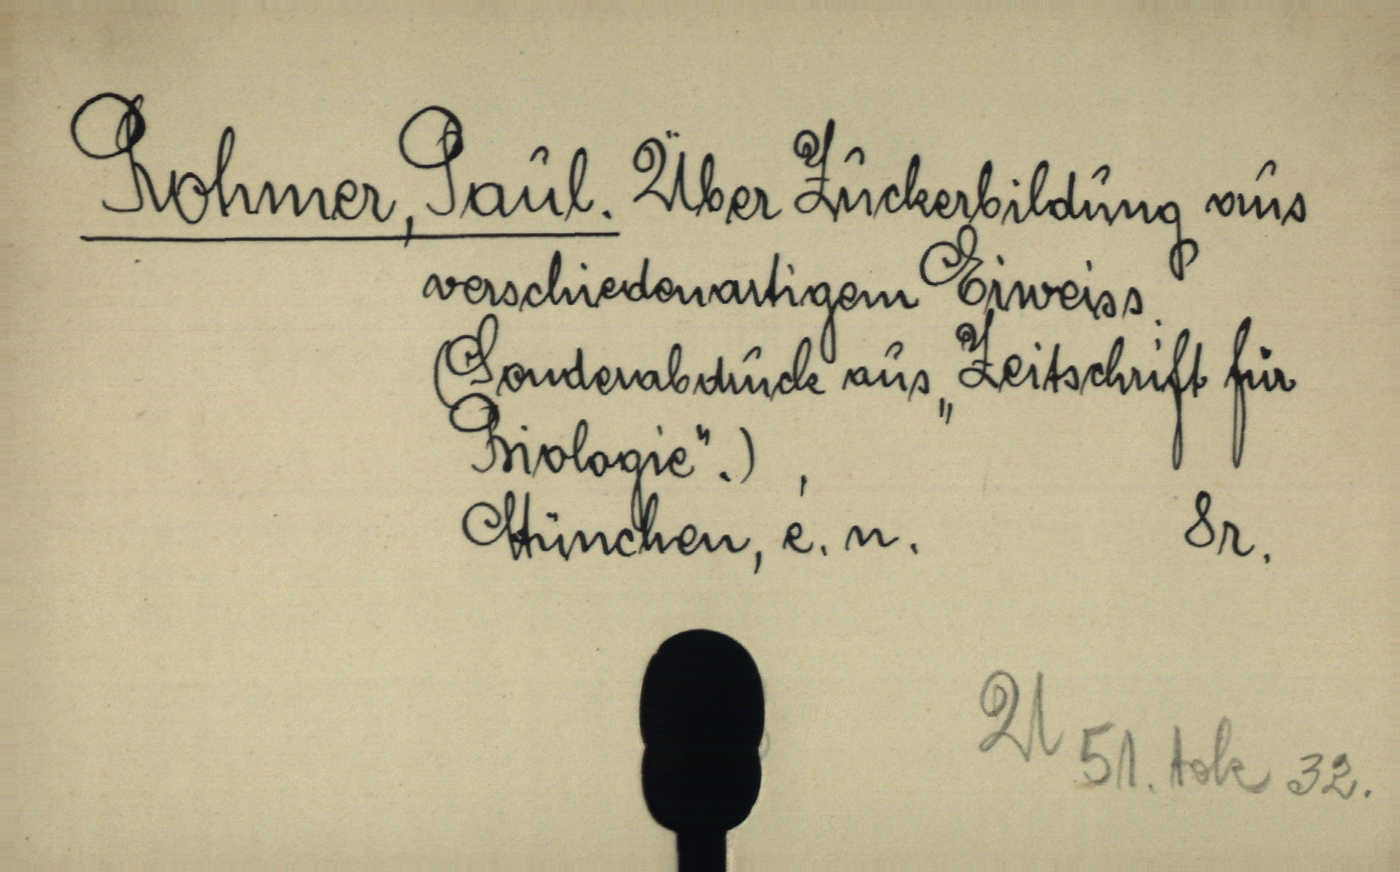 Rohmer, Paul. Über Zuckerbildung aus
verschiedenartigem Eiweiss.
(Sonderabdruck aus „Zeitschrift für
Biologie".)
München, é. n. 8r.
U 51. tok 32.